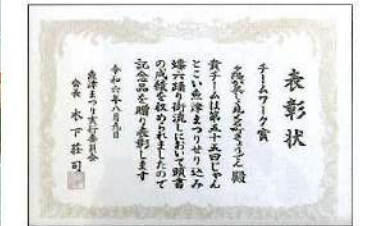 表彰状
チームワーク賞
殿
貴チームは第五十五回じゃん
とこい魚津まつりせり込み
蝶六踊り街流しにおいて頭書
の成績を収められましたので
記念品を贈り表彰します
令和六年八月九日
魚津まつり実行委員会
会長 木下荘司